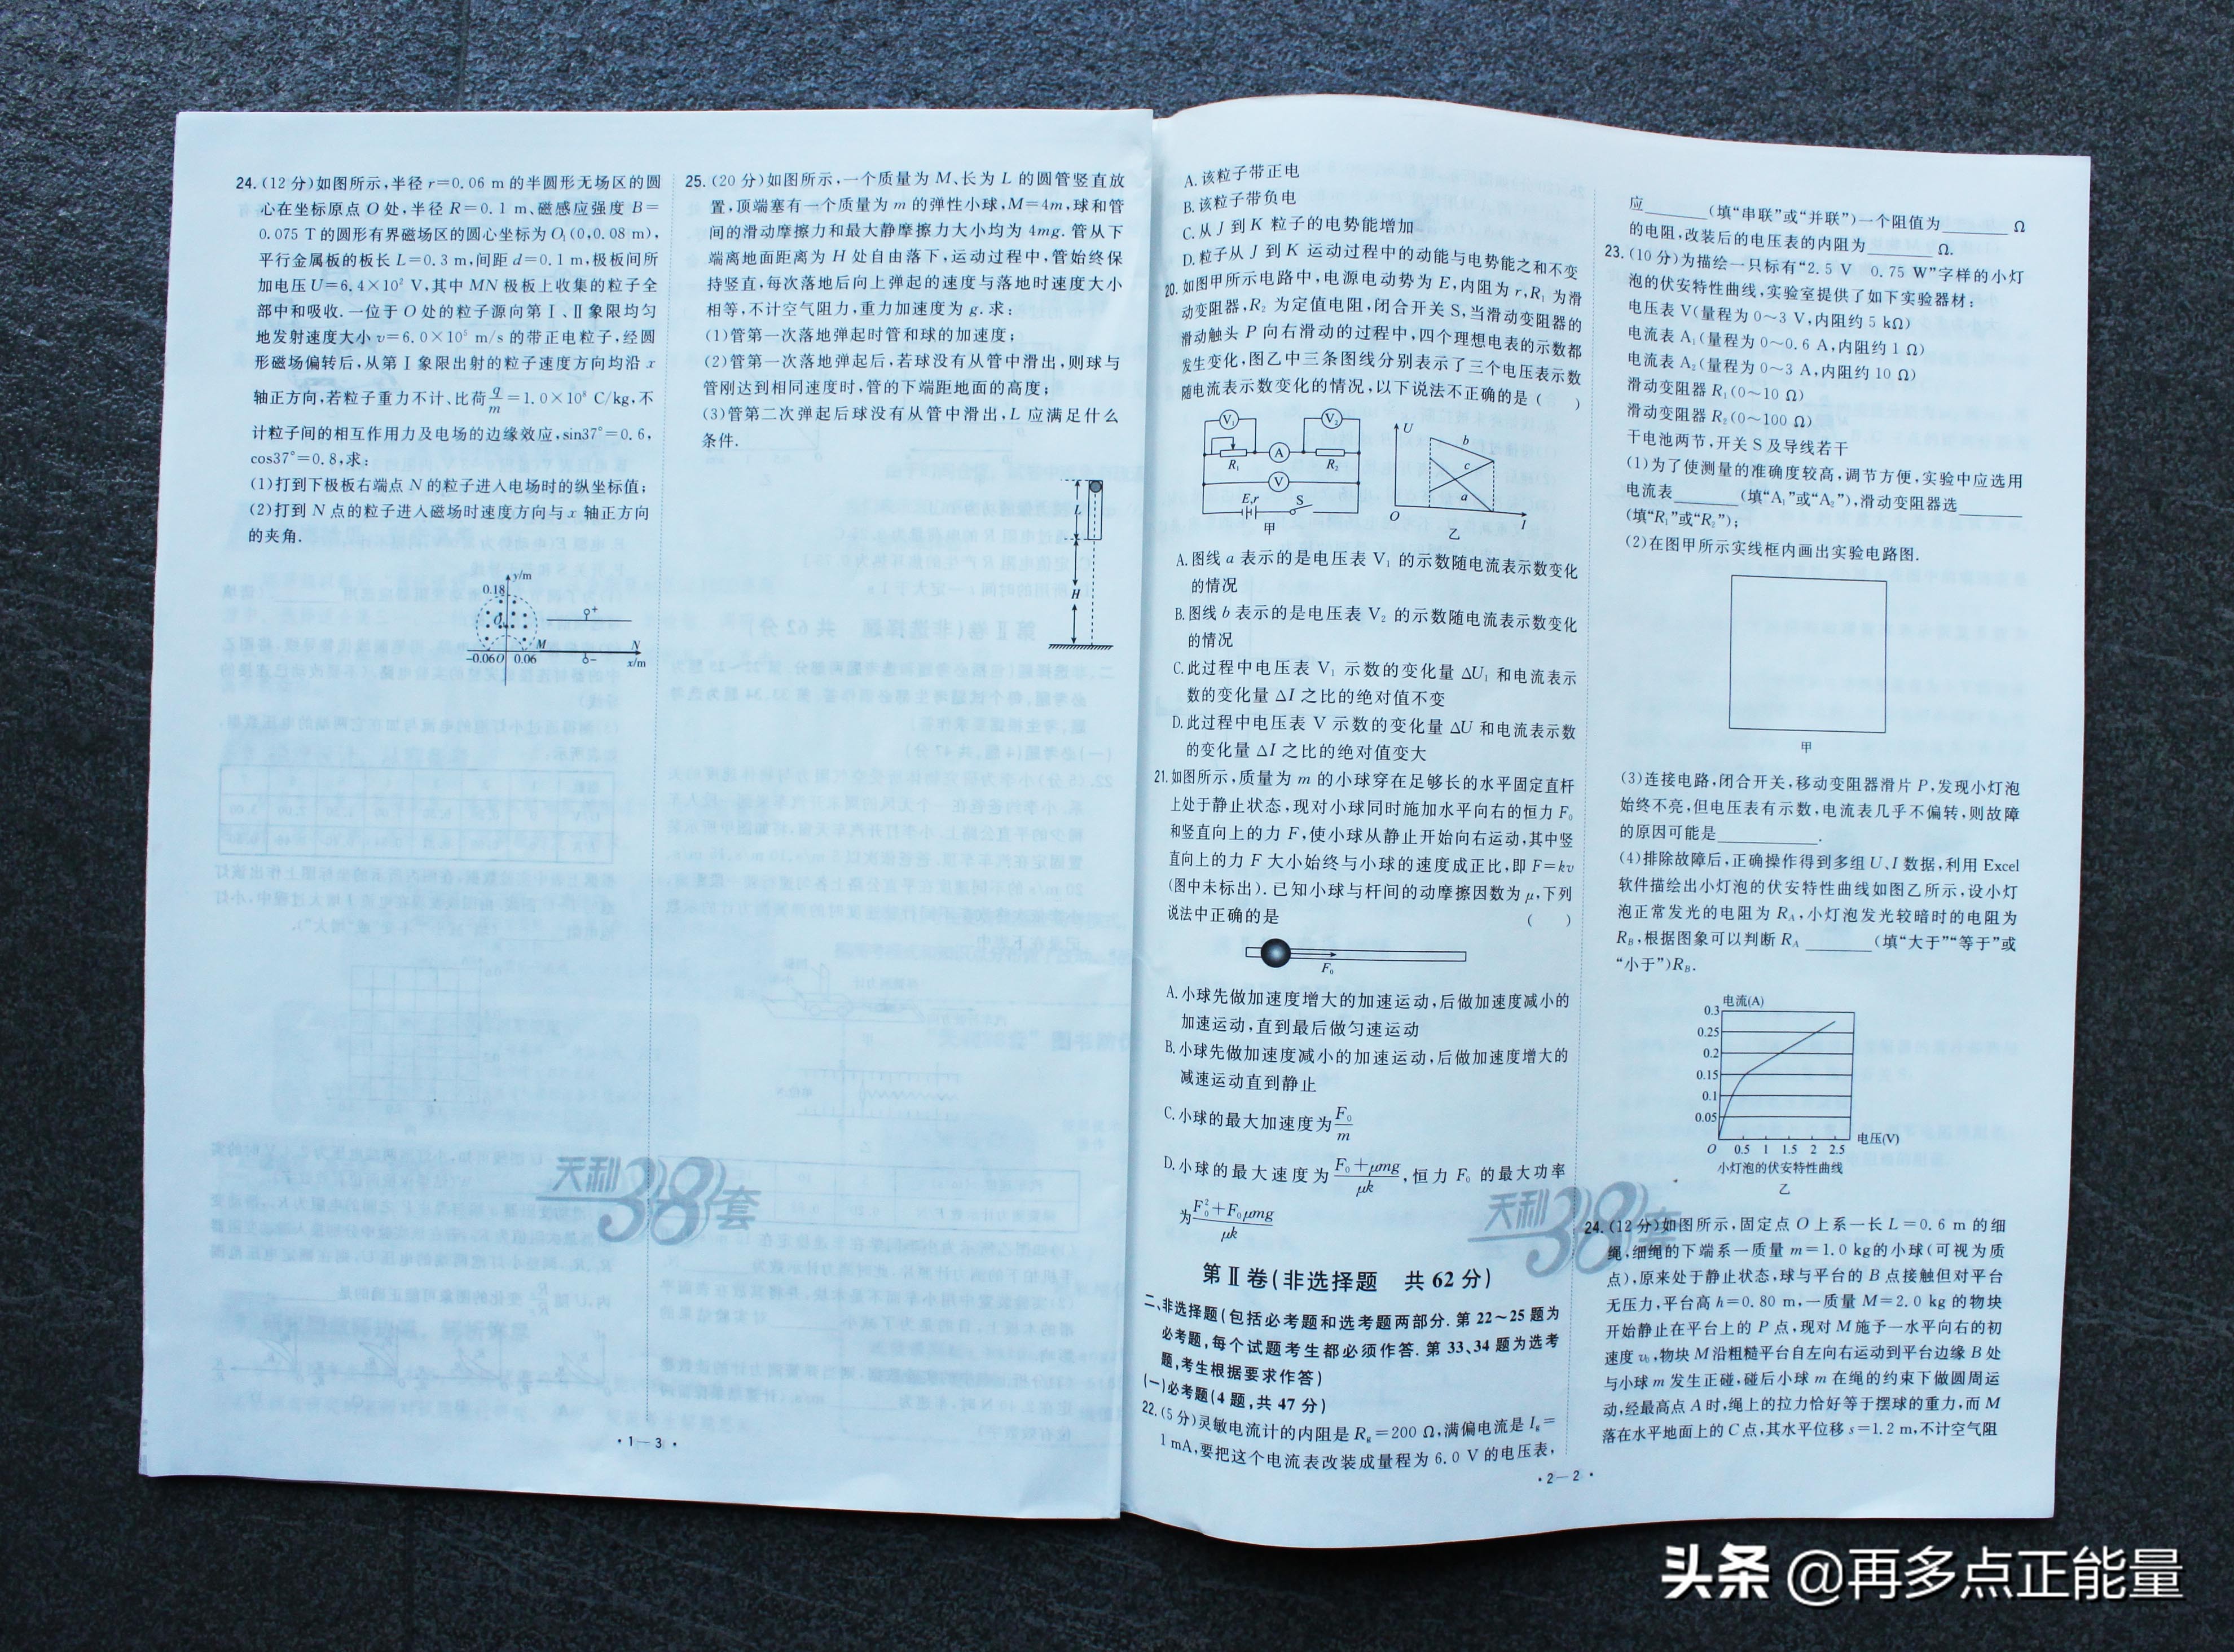 24.(12分)如图所示,半径 r=0.06 m 的半圆形无场区的圆
心在坐标原点 O 处,半径 R=0.1 m、磁感应强度 B=
0.075 T 的圆形有界磁场区的圆心坐标为 O₁(0,0.08 m),
平行金属板的板长 L=0.3 m,间距 d=0.1 m,极板间所
加电压 U=6.4×10² V,其中 MN 极板上收集的粒子全
部中和吸收.一位于 O 处的粒子源向第Ⅰ、Ⅱ象限均匀
地发射速度大小 v=6.0×10⁵ m/s 的带正电粒子,经圆
形磁场偏转后,从第Ⅰ象限出射的粒子速度方向均沿 x
轴正方向,若粒子重力不计、比荷 q/m =1.0×10⁸ C/kg,不
计粒子间的相互作用力及电场的边缘效应,sin37°=0.6,
cos37°=0.8,求:
(1)打到下极板右端点 N 的粒子进入电场时的纵坐标值;
(2)打到 N 点的粒子进入磁场时速度方向与 x 轴正方向
的夹角.
y/m
0.18
O₁
+
M
N
-0.06 O 0.06
−
x/m
25.(20分)如图所示,一个质量为 M、长为 L 的圆管竖直放
置,顶端塞有一个质量为 m 的弹性小球,M=4m,球和管
间的滑动摩擦力和最大静摩擦力大小均为 4mg.管从下
端离地面距离为 H 处自由落下,运动过程中,管始终保
持竖直,每次落地后向上弹起的速度与落地时速度大小
相等,不计空气阻力,重力加速度为 g.求:
(1)管第一次落地弹起时管和球的加速度;
(2)管第一次落地弹起后,若球没有从管中滑出,则球与
管刚达到相同速度时,管的下端距地面的高度;
(3)管第二次弹起后球没有从管中滑出,L 应满足什么
条件.
L
H
天利38套
·1—3·
A.该粒子带正电
B.该粒子带负电
C.从 J 到 K 粒子的电势能增加
D.粒子从 J 到 K 运动过程中的动能与电势能之和不变
20.如图甲所示电路中,电源电动势为 E,内阻为 r,R₁ 为滑
动变阻器,R₂ 为定值电阻,闭合开关 S,当滑动变阻器的
滑动触头 P 向右滑动的过程中,四个理想电表的示数都
发生变化,图乙中三条图线分别表示了三个电压表示数
随电流表示数变化的情况,以下说法不正确的是 ( )
V₁
V₂
A
R₁
R₂
V
E,r
S
甲
U
b
c
a
O
I
乙
A.图线 a 表示的是电压表 V₁ 的示数随电流表示数变化
的情况
B.图线 b 表示的是电压表 V₂ 的示数随电流表示数变化
的情况
C.此过程中电压表 V₁ 示数的变化量 ΔU₁ 和电流表示
数的变化量 ΔI 之比的绝对值不变
D.此过程中电压表 V 示数的变化量 ΔU 和电流表示数
的变化量 ΔI 之比的绝对值变大
21.如图所示,质量为 m 的小球穿在足够长的水平固定直杆
上处于静止状态,现对小球同时施加水平向右的恒力 F₀
和竖直向上的力 F,使小球从静止开始向右运动,其中竖
直向上的力 F 大小始终与小球的速度成正比,即 F=kv
(图中未标出).已知小球与杆间的动摩擦因数为 μ,下列
说法中正确的是 ( )
F₀
A.小球先做加速度增大的加速运动,后做加速度减小的
加速运动,直到最后做匀速运动
B.小球先做加速度减小的加速运动,后做加速度增大的
减速运动直到静止
C.小球的最大加速度为 F₀/m
D.小球的最大速度为 (F₀+μmg)/μk,恒力 F₀ 的最大功率
为 (F₀²+F₀μmg)/μk
第Ⅱ卷(非选择题 共62分)
二、非选择题(包括必考题和选考题两部分.第22~25题为
必考题,每个试题考生都必须作答.第33、34题为选考
题,考生根据要求作答)
(一)必考题(4题,共47分)
22.(5分)灵敏电流计的内阻是 Rg=200 Ω,满偏电流是 Ig=
1 mA,要把这个电流表改装成量程为 6.0 V 的电压表,
·2—2·
应______(填“串联”或“并联”)一个阻值为______ Ω
的电阻,改装后的电压表的内阻为______ Ω.
23.(10分)为描绘一只标有“2.5 V 0.75 W”字样的小灯
泡的伏安特性曲线,实验室提供了如下实验器材:
电压表 V(量程为 0~3 V,内阻约 5 kΩ)
电流表 A₁(量程为 0~0.6 A,内阻约 1 Ω)
电流表 A₂(量程为 0~3 A,内阻约 10 Ω)
滑动变阻器 R₁(0~10 Ω)
滑动变阻器 R₂(0~100 Ω)
干电池两节,开关 S 及导线若干
(1)为了使测量的准确度较高,调节方便,实验中应选用
电流表______(填“A₁”或“A₂”),滑动变阻器选______
(填“R₁”或“R₂”);
(2)在图甲所示实线框内画出实验电路图.
甲
(3)连接电路,闭合开关,移动变阻器滑片 P,发现小灯泡
始终不亮,但电压表有示数,电流表几乎不偏转,则故障
的原因可能是__________.
(4)排除故障后,正确操作得到多组 U、I 数据,利用 Excel
软件描绘出小灯泡的伏安特性曲线如图乙所示,设小灯
泡正常发光的电阻为 RA,小灯泡发光较暗时的电阻为
RB,根据图象可以判断 RA ______(填“大于”“等于”或
“小于”)RB.
电流(A)
0.3
0.25
0.2
0.15
0.1
0.05
O 0.5 1 1.5 2 2.5 电压(V)
小灯泡的伏安特性曲线
乙
天利38套
24.(12分)如图所示,固定点 O 上系一长 L=0.6 m 的细
绳,细绳的下端系一质量 m=1.0 kg的小球(可视为质
点),原来处于静止状态,球与平台的 B 点接触但对平台
无压力,平台高 h=0.80 m,一质量 M=2.0 kg 的物块
开始静止在平台上的 P 点,现对 M 施予一水平向右的初
速度 v₀,物块 M 沿粗糙平台自左向右运动到平台边缘 B 处
与小球 m 发生正碰,碰后小球 m 在绳的约束下做圆周运
动,经最高点 A 时,绳上的拉力恰好等于摆球的重力,而 M
落在水平地面上的 C 点,其水平位移 s=1.2 m,不计空气阻
头条 @再多点正能量